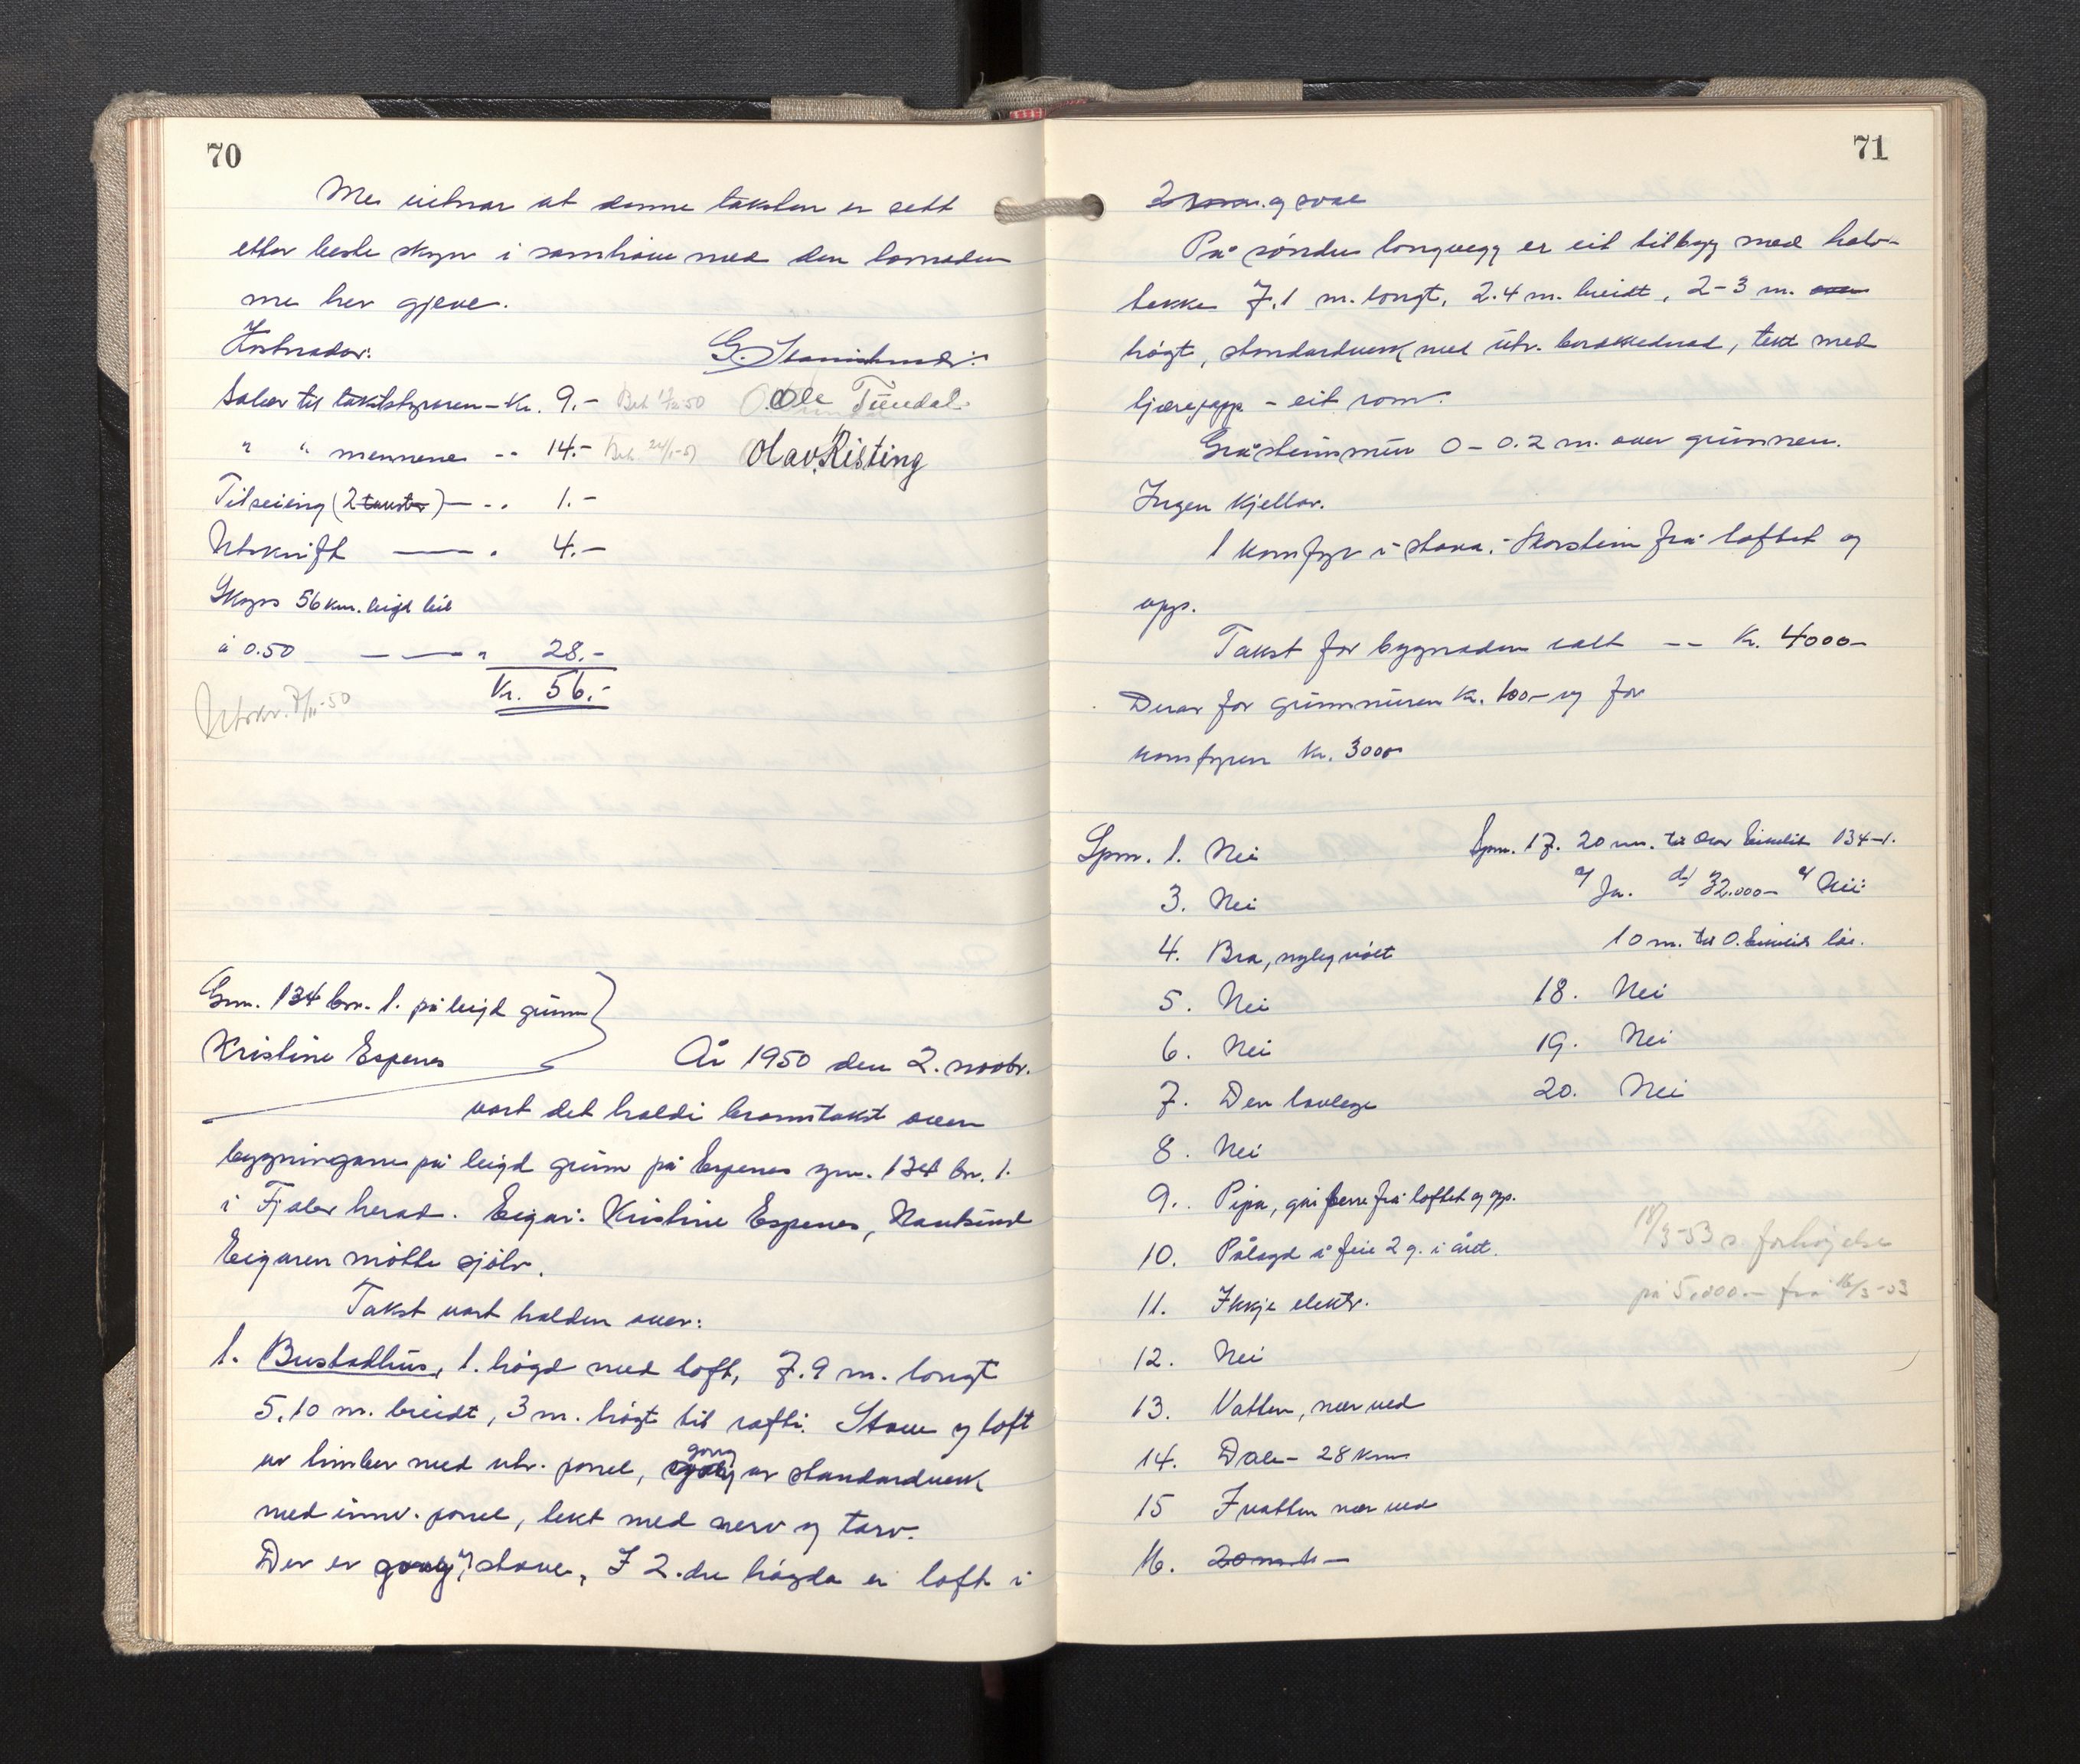 70
Me vitnar at denne taksten er sett
etter beste skyn i samhøve med den lovnaden
me her gjeve.
Kostnader:
Salær til takststyraren - Kr. 9.-
Ole Tundal
" " mennene -- 14.-
Olav Risting
Tilseiing (2 takster) - - . 1.-
Utskrift — . 4.-
Skyss 56 km. leigd bil
à 0.50 — — " 28.-
Kr. 56.-
Utskr. 7/11-50
Gnr. 134 bnr. 1. på leigd grunn
Kristine Espenes
År 1950 den 2. novbr.
vart det haldi branntakst over
bygningane på leigd grunn på Espenes gnr. 134 bnr. 1.
i Fjaler herad. Eigar: Kristine Espenes,
Eigaren møtte sjølv.
Takst vart halden over:
1. Bustadhus, 1. høgd med loft, 7.9 m. langt
5.10 m. breidt, 3 m. høgt til raft. Stove og loft
av timber med utv. panel, gang av standardverk
med innv. panel, tekt med nerv og torv.
Der er gang og stove, I 2.dre høgda er loft i
71
2 rom. og sval
På søndre langvegg er eit tilbygg med halv-
tekke 7.1 m. langt, 2.4 m. breidt, 2-3 m.
høgt, standardverk med utv. bordklednad, tekt med
tjærepapp - eit rom.
Gråsteinsmur 0 - 0.2 m. over grunnen.
Ingen kjellar.
1 komfyr i stova. - Skorstein frå loftet og
opp.
Takst for bygnaden i alt -- Kr. 4000-
Derav for grunnmuren kr. 100- og for
komfyren kr. 300-
Spm. 1. Nei
3. Nei
4. Bra, nyleg vølt
5. Nei
6. Nei
7. Den lovlege
8. Nei
9. Pipa, går berre frå loftet og opp.
10. Pålagd å feie 2 g. i året.
11. Ikkje elektr.
12. Nei
13. Vatten, nær ved
14. Dale - 28 km
15 I vatten nær ved
16. 20 m. h -
Spm. 17. 20 m. til Olav Eimelid 134-1.
a) Ja. d) 32.000- e) Nei
10 m. til O. Eimelids løe.
18. Nei
19. Nei
20. Nei
18/3-53 s. forhøjelse
på 5.000.- frå 16/3-53